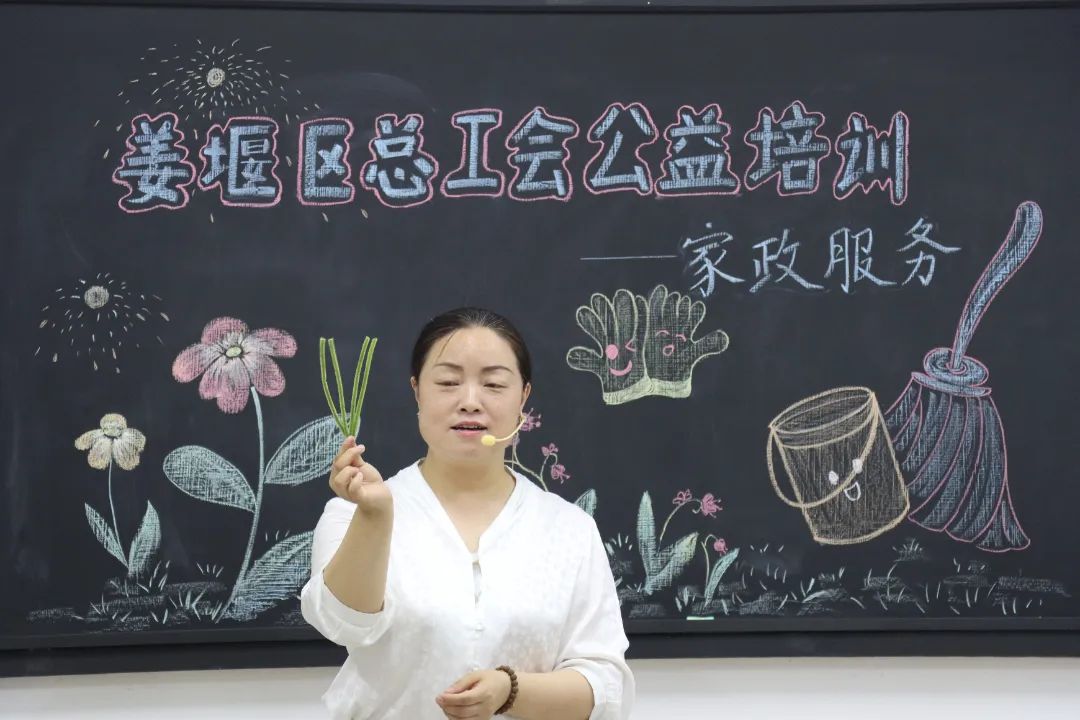 姜堰区总工会公益培训
——家政服务